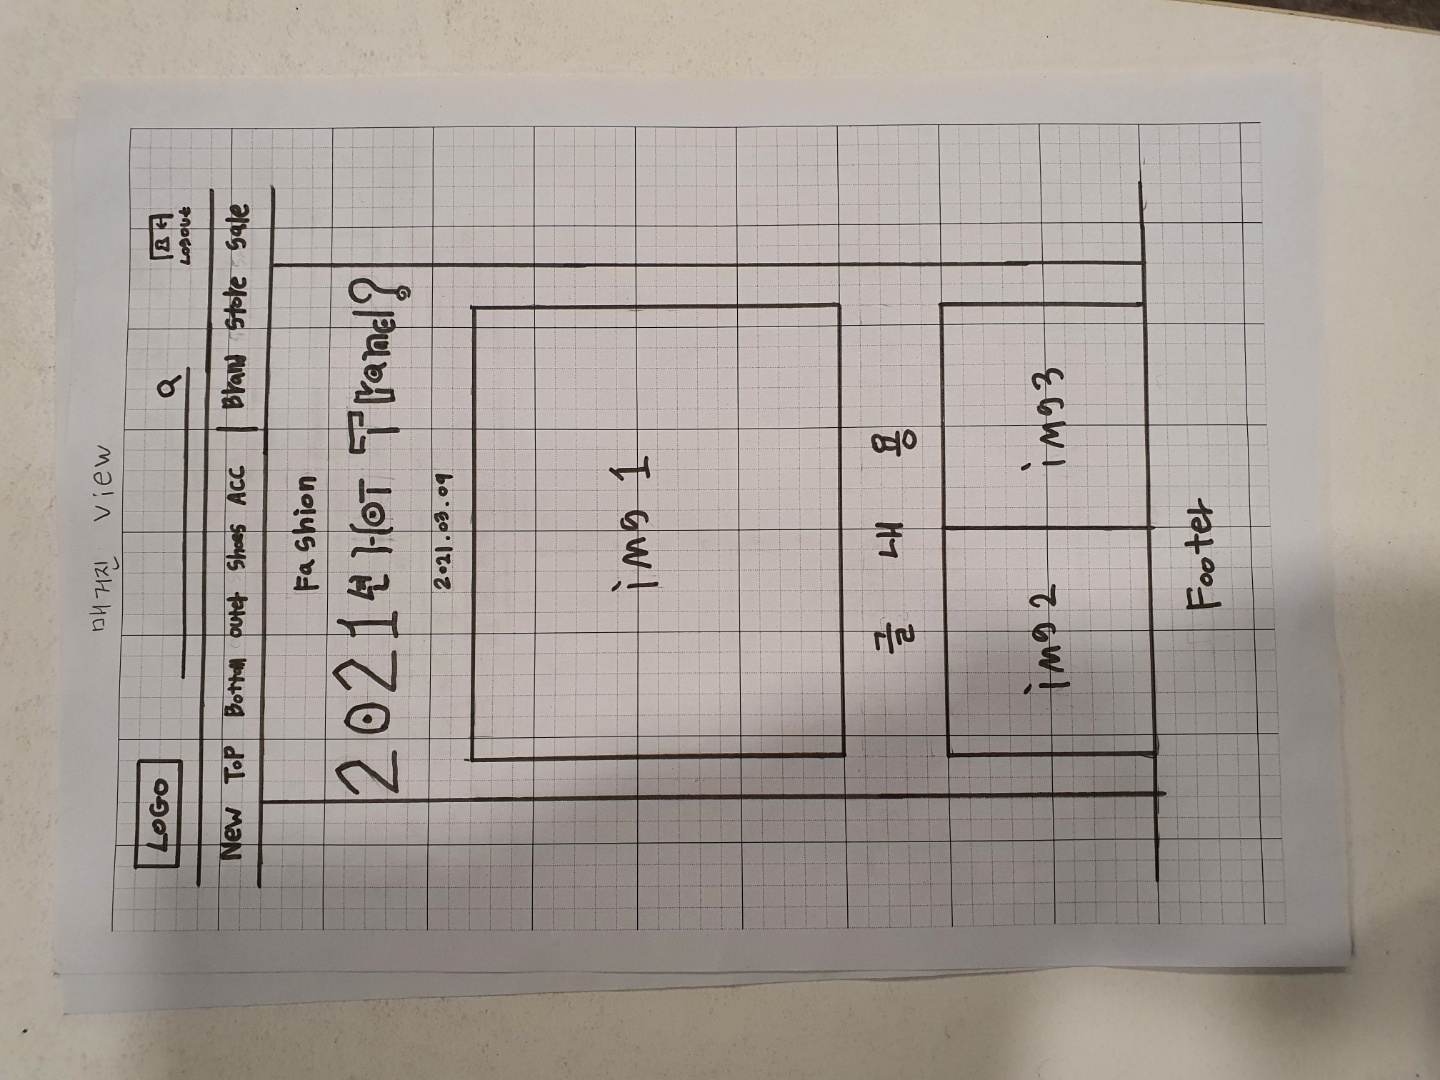 매거진 view
LOGO
Logout
New Top Bottom outer Shoes ACC Brand Store Sale
Fashion
2021년 HOT Trand?
2021.03.09
img 1
글 내 용
img 2 img 3
Footer